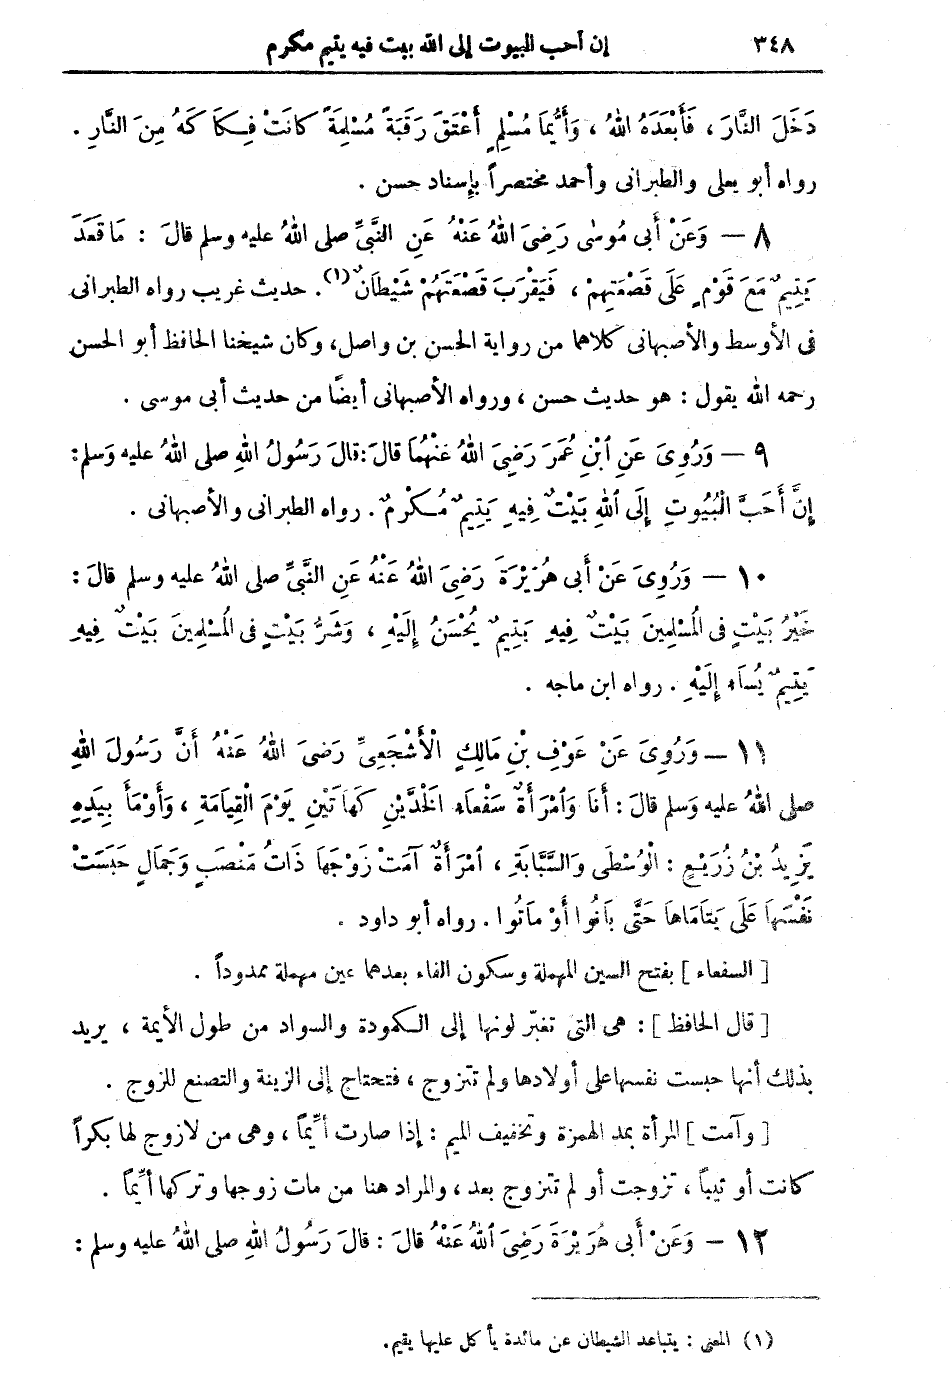 ٣٤٨ إن أحب البيوت إلى الله بيت فيه يتيم مكرم
دَخَلَ النَّارَ ، فَأَبْعَدَهُ اللهُ ، وَأَيُّمَا مُسْلِمٍ أَعْتَقَ رَقَبَةً مُسْلِمَةً كَانَتْ فِكَاكَهُ مِنَ النَّارِ .
رواه أبو يعلى والطبرانى وأحمد مختصراً بإسناد حسن .
٨ — وَعَنْ أَبِى مُوسٰى رَضِىَ اللهُ عَنْهُ عَنِ النَّبِىِّ صلى اللهُ عليه وسلم قالَ : مَا قَعَدَ
يَتِيمٌ مَعَ قَوْمٍ عَلَى قَصْعَتِهِمْ ، فَيَقْرَبَ قَصْعَتَهُمْ شَيْطَانٌ (١). حديث غريب رواه الطبرانى
فى الأوسط والأصبهانى كلاهما من رواية الحسن بن واصل، وكان شيخنا الحافظ أبو الحسن
رحمه الله يقول : هو حديث حسن ، ورواه الأصبهانى أيضًا من حديث أبى موسى .
٩ — وَرُوِىَ عَنِ ابْنِ عُمَرَ رَضِىَ اللهُ عَنْهُمَا قالَ: قالَ رَسُولُ اللهِ صلى اللهُ عليه وَسلم:
إِنَّ أَحَبَّ الْبُيُوتِ إِلَى اللهِ بَيْتٌ فِيهِ يَتِيمٌ مُكْرَمٌ . رواه الطبرانى والأصبهانى .
١٠ — وَرُوِىَ عَنْ أَبِى هُرَيْرَةَ رَضِىَ اللهُ عَنْهُ عَنِ النَّبِىِّ صلى اللهُ عليه وسلم قالَ :
خَيْرُ بَيْتٍ فِى الْمُسْلِمِينَ بَيْتٌ فِيهِ يَتِيمٌ يُحْسَنُ إِلَيْهِ ، وَشَرُّ بَيْتٍ فِى الْمُسْلِمِينَ بَيْتٌ فِيهِ
يَتِيمٌ يُسَاءُ إِلَيْهِ . رواه ابن ماجه .
١١ — وَرُوِىَ عَنْ عَوْفِ بْنِ مَالِكٍ الْأَشْجَعِىِّ رَضِىَ اللهُ عَنْهُ أَنَّ رَسُولَ اللهِ
صلى اللهُ عليه وَسلم قالَ : أَنَا وَامْرَأَةٌ سَفْعَاءُ الْخَدَّيْنِ كَهَاتَيْنِ يَوْمَ الْقِيَامَةِ ، وَأَوْمَأَ بِيَدِهِ
يَزِيدُ بْنُ زُرَيْعٍ : الْوُسْطَى وَالسَّبَّابَةِ ، امْرَأَةٌ آمَتْ زَوْجَهَا ذَاتُ مَنْصَبٍ وَجَمَالٍ حَبَسَتْ
نَفْسَهَا عَلَى يَتَامَاهَا حَتَّى بَانُوا أَوْ مَاتُوا . رواه أبو داود .
[ السفعاء ] بفتح السين المهملة وسكون الفاء بعدهما عين مهملة ممدوداً .
[ قال الحافظ ] : هى التى تغيّر لونها إلى الكمودة والسواد من طول الأيمة ، يريد
بذلك أنها حبست نفسها على أولادها ولم تتزوج ، فتحتاج إلى الزينة والتصنع للزوج .
[ وآمت ] المرأة بمد الهمزة وتخفيف الميم : إذا صارت أيِّماً ، وهى من لازوج لها بكراً
كانت أو ثيباً ، تزوجت أو لم تتزوج بعد ، والمراد هنا من مات زوجها وتركها أيِّماً .
١٢ — وَعَنْ أَبِى هُرَيْرَةَ رَضِىَ اللهُ عَنْهُ قالَ : قالَ رَسُولُ اللهِ صلى اللهُ عليه وسلم :
(١) المعنى : يتباعد الشيطان عن مائدة يأكل عليها يقيم.